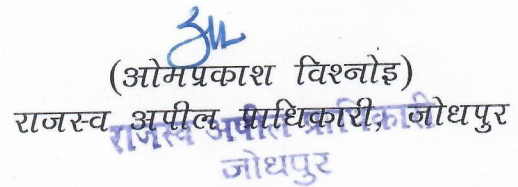 (ओमप्रकाश विश्नोइ)
राजस्व अपील प्राधिकारी, जोधपुर
राजस्व अपील प्राधिकारी
जोधपुर